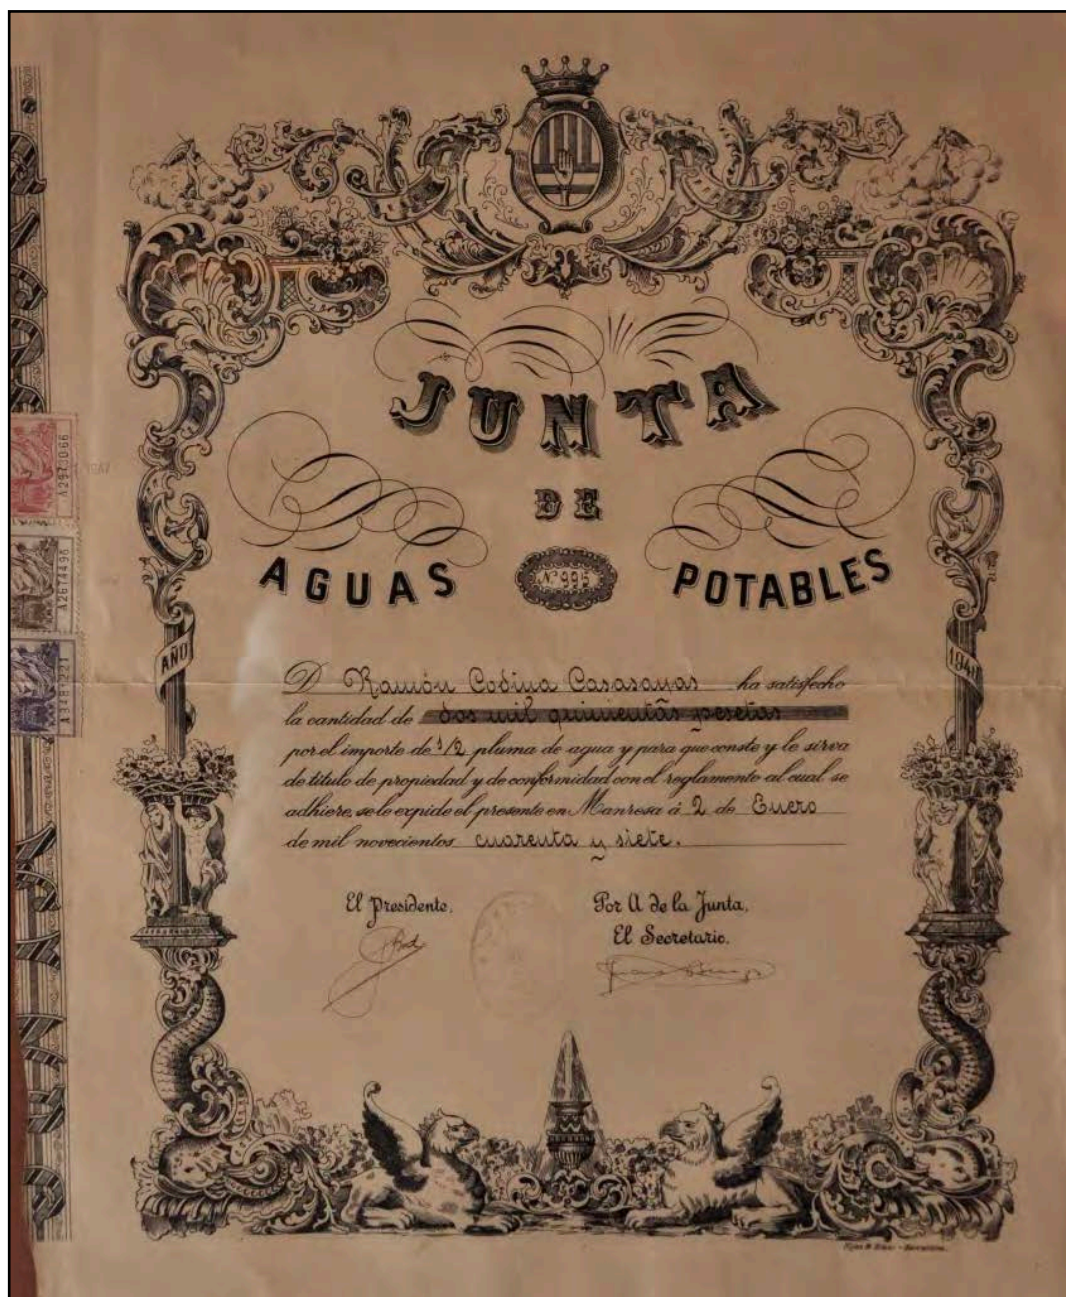 JUNTA
DE
AGUAS Nº 995 POTABLES
AÑO
D. Ramón Codina Casasayas ha satisfecho
la cantidad de dos mil quinientas pesetas
por el importe de 1/2 pluma de agua y para que conste y le sirva
de título de propiedad y de conformidad con el reglamento al cual se
adhiere, se le expide el presente en Manresa á 2 de Enero
de mil novecientos cuarenta y siete.
El Presidente,
Por A de la Junta,
El Secretario.
A2674496
A3481221
Barcelona